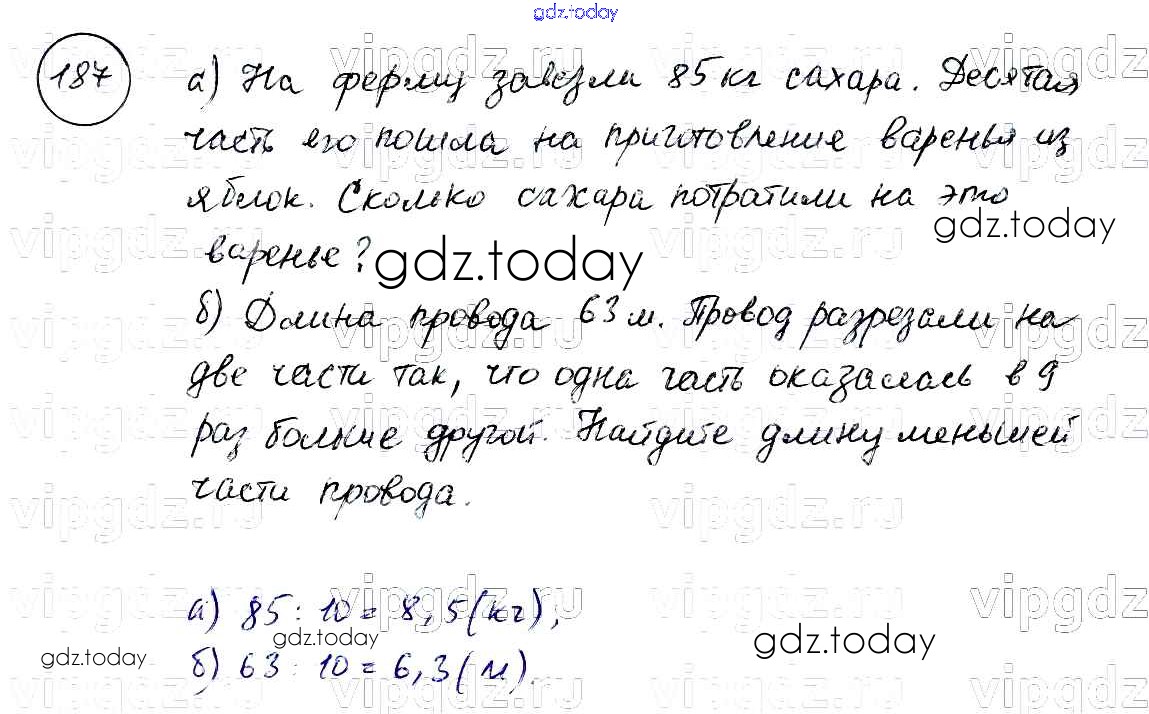 gdz.today
187
а) На ферму завезли 85 кг сахара. Десятая
часть его пошла на приготовление варенья из
яблок. Сколько сахара потратили на это
варенье?
gdz.today
gdz.today
б) Длина провода 63 м. Провод разрезали на
две части так, что одна часть оказалась в 9
раз больше другой. Найдите длину меньшей
части провода.
а) 85 : 10 = 8,5 (кг);
б) 63 : 10 = 6,3 (м).
gdz.today
gdz.today
gdz.today
vipgdz.ru